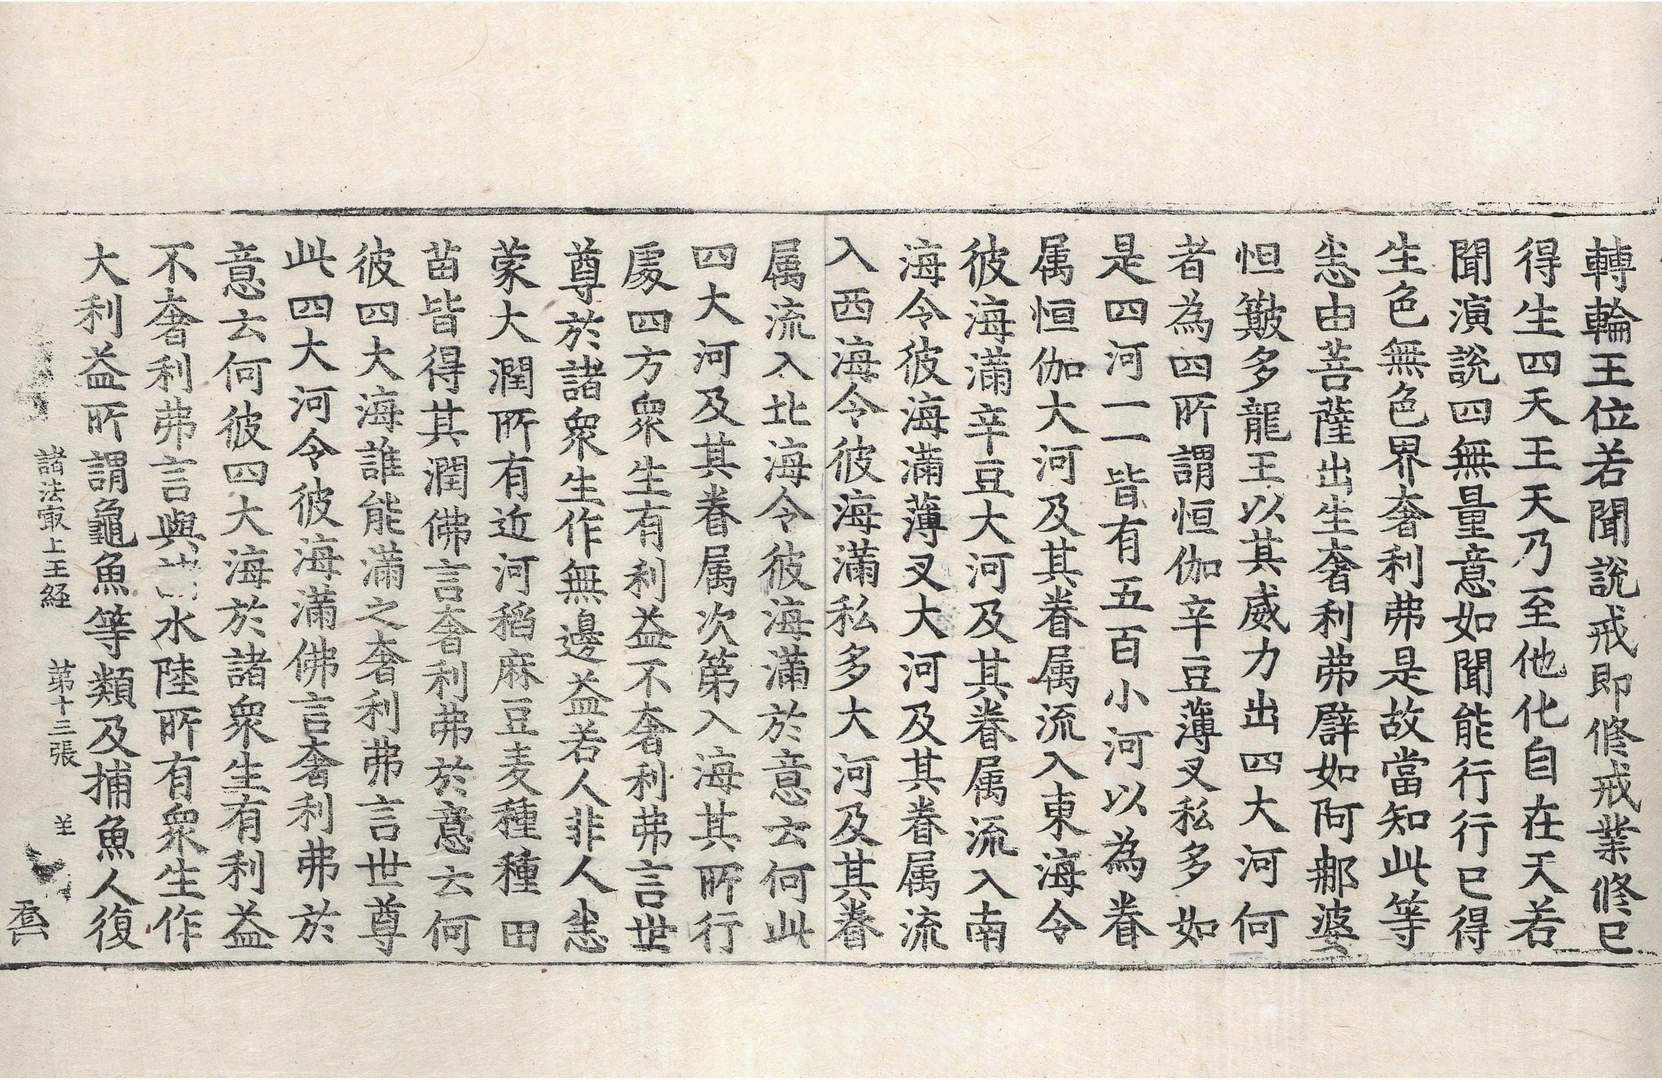 轉輪王位若聞說戒即修戒業修已
得生四天王天乃至他化自在天若
聞演說四無量意如聞能行行已得
生色無色界奢利弗是故當知此等
悉由菩薩出生奢利弗譬如阿那婆
怛蹹多龍王以其威力出四大河何
者為四所謂恒伽辛豆薄叉私多如
是四河一一皆有五百小河以為眷
属恒伽大河及其眷属流入東海令
彼海滿辛豆大河及其眷属流入南
海令彼海滿薄叉大河及其眷属流
入西海令彼海滿私多大河及其眷
属流入北海令彼海滿於意云何此
四大河及其眷属次第入海其所行
處四方衆生有利益不奢利弗言世
尊於諸衆生作無邊益若人非人悉
蒙大潤所有近河稻麻豆麦種種田
苗皆得其潤佛言奢利弗於意云何
彼四大海誰能滿之奢利弗言世尊
此四大河令彼海滿佛言奢利弗於
意云何彼四大海於諸衆生有利益
不奢利弗言與水陸所有衆生作
大利益所謂龜魚等類及捕魚人復
諸法最上王經 第十三張